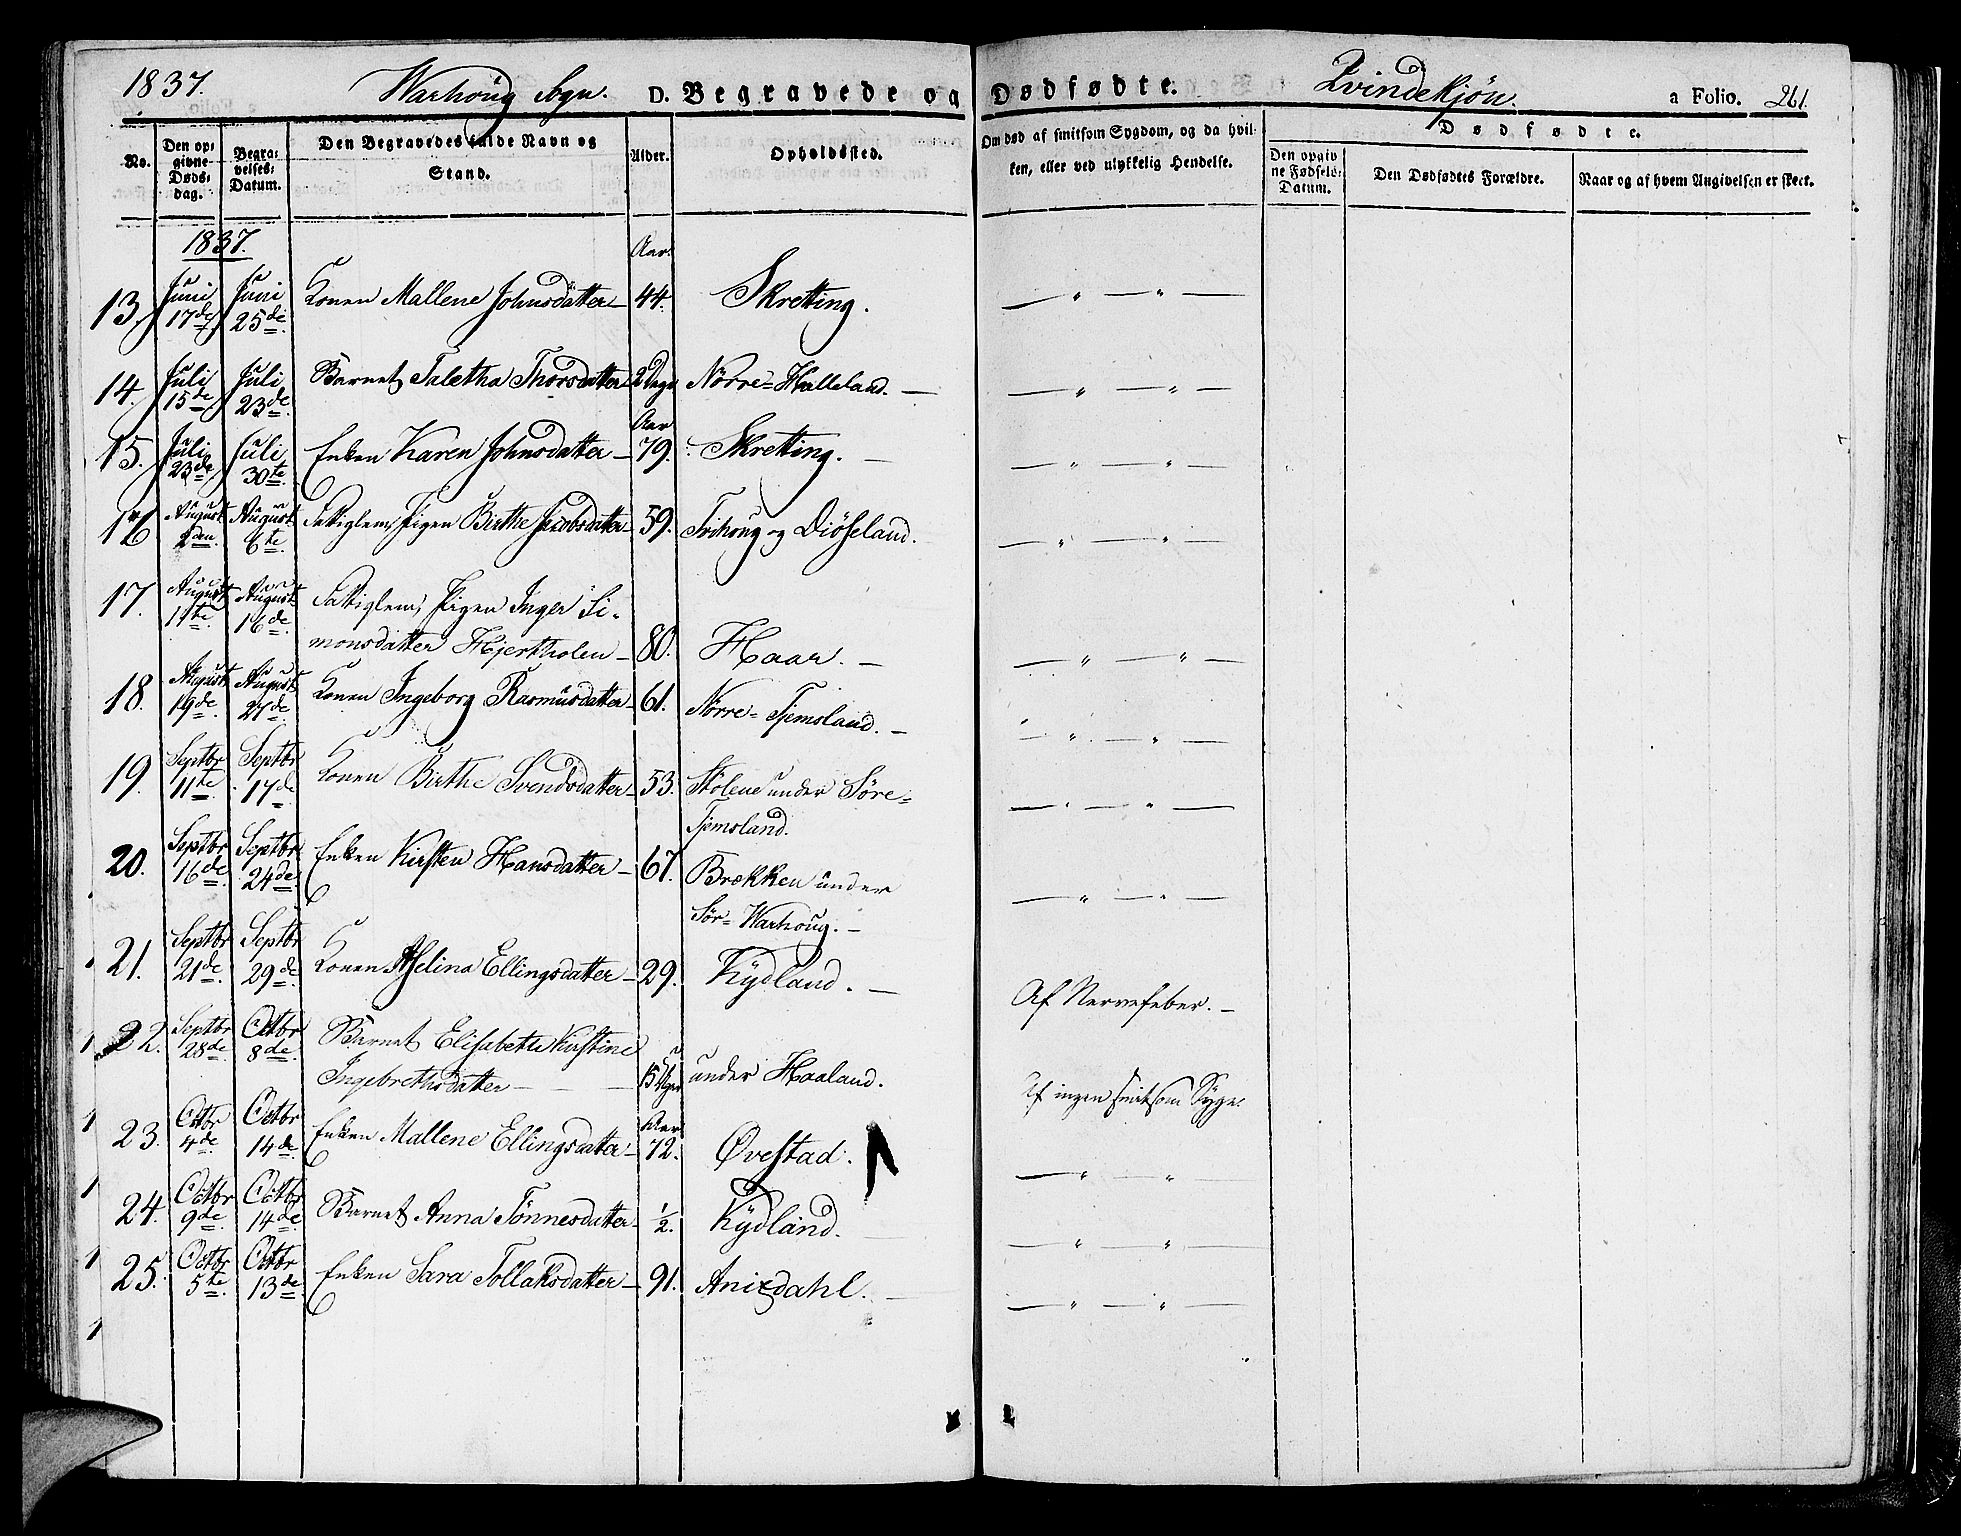 1837. Warhoug Sogn. D. Begravede og Dødfødte. Qvindekjön. a Folio. 261.
No. Den opgivne Dødsdag. Begravelses-Datum. Den Begravedes fulde Navn og Stand. Alder. Opholdssted. Om død af smitsom Sygdom, og da hvilken, eller ved ulykkelig Hendelse. Dødfødte. Den opgivne Fødsels-Datum. Den Dødfødtes Forældre. Naar og af hvem Angivelsen er skeet.
1837. Aar.
13. Juni 17de Juni 25de Konen Mallene Johnsdatter 44. Skretting. — " — " —
14. Juli 15de Juli 23de Barnet Taletha Thorsdatter 2 Dage Nörre-Halleland. — " — " —
Aar
15. Juli 23de Juli 30te Enken Karen Johnsdatter 79. Skretting. — " — " —
16 August 2den August 6te Pigen Birthe Jacobsdatter 59. Trihoug og Diöseland. — " — " —
17. August 11te August 16de Pigen Inger Si-
monsdatter Hjertholen 80. Haar. — " — " —
18. August 19de August 27de Konen Ingeborg Rasmusdatter 61. Nörre-Tjemsland. — " — " —
19. Septbr 11te Septbr 17de Konen Birthe Svendsdatter 53. Stölene under Söre-
Tjemsland. — " — " —
20. Septbr 16de Septbr 24de Enken Kirsten Hansdatter 67. Brekken under
Sör-Warhoug. — " — " —
21. Septbr 21de Septbr 29de Konen Aselina Ellingsdatter 29. Kydland. Af Nervefeber.
22. Septbr 28de Octbr 8de Barnet Elisabeth Kirstine
Ingebrethsdatter 15 Uger under Haaland. Af ingen smitsom Syge.
Aar
23. Octbr 4de Octbr 14de Enken Mallene Ellingsdatter 72. Øvestad. — " — " —
24. Octbr 9de Octbr 14de Barnet Anna Tönnesdatter 1/2. Kydland. — " — " —
25. Octbr 5te Octbr 13de Enken Sara Tollaksdatter 91. Anisdahl. — " — " —